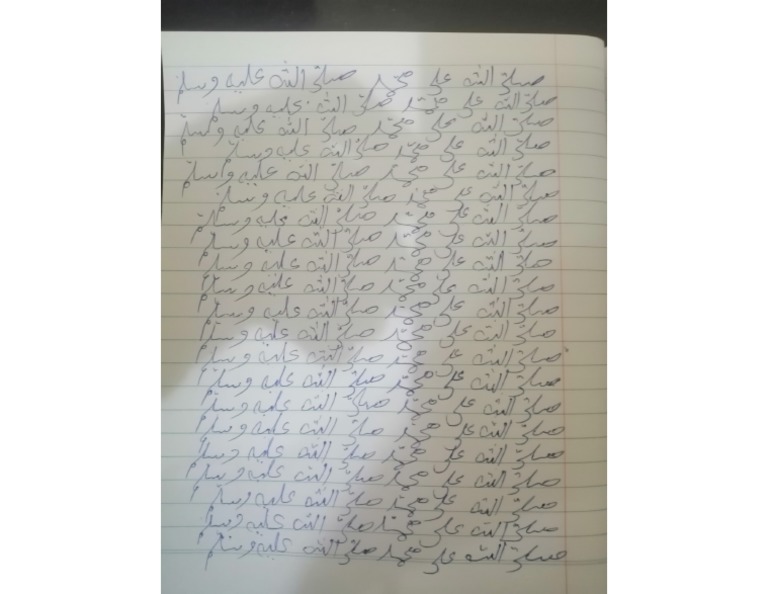 صلى الله على محمد صلى الله عليه وسلم
صلى الله على محمد صلى الله عليه وسلم
صلى الله على محمد صلى الله عليه وسلم
صلى الله على محمد صلى الله عليه وسلم
صلى الله على محمد صلى الله عليه وسلم
صلى الله على محمد صلى الله عليه وسلم
صلى الله على محمد صلى الله عليه وسلم
صلى الله على محمد صلى الله عليه وسلم
صلى الله على محمد صلى الله عليه وسلم
صلى الله على محمد صلى الله عليه وسلم
صلى الله على محمد صلى الله عليه وسلم
صلى الله على محمد صلى الله عليه وسلم
صلى الله على محمد صلى الله عليه وسلم
صلى الله على محمد صلى الله عليه وسلم
صلى الله على محمد صلى الله عليه وسلم
صلى الله على محمد صلى الله عليه وسلم
صلى الله على محمد صلى الله عليه وسلم
صلى الله على محمد صلى الله عليه وسلم
صلى الله على محمد صلى الله عليه وسلم
صلى الله على محمد صلى الله عليه وسلم
صلى الله على محمد صلى الله عليه وسلم